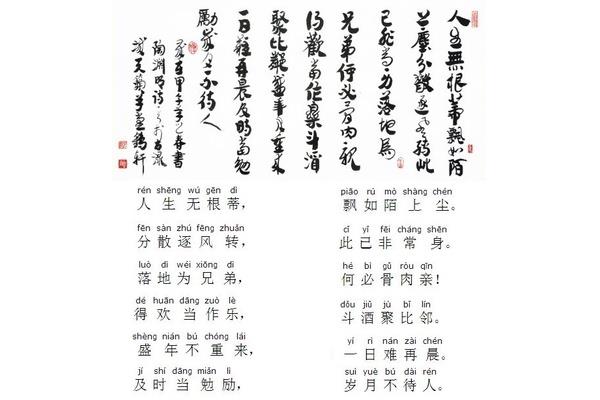 人生無根蒂飄如陌
上塵分散逐風轉此
已非常身落地為
兄弟何必骨肉親
得歡當作樂斗酒
聚比鄰盛年不重來
一日難再晨及時當勉
勵歲月不待人
陶淵明詩
rén shēng wú gēn dì
人生无根蒂，
piāo rú mò shàng chén
飘如陌上尘。
fēn sàn zhú fēng zhuǎn
分散逐风转，
cǐ yǐ fēi cháng shēn
此已非常身。
luò dì wéi xiōng dì
落地为兄弟，
hé bì gǔ ròu qīn
何必骨肉亲！
dé huān dāng zuò lè
得欢当作乐，
dǒu jiǔ jù bǐ lín
斗酒聚比邻。
shèng nián bú chóng lái
盛年不重来，
yí rì nán zài chén
一日难再晨。
jí shí dāng miǎn lì
及时当勉励，
suì yuè bú dài rén
岁月不待人。